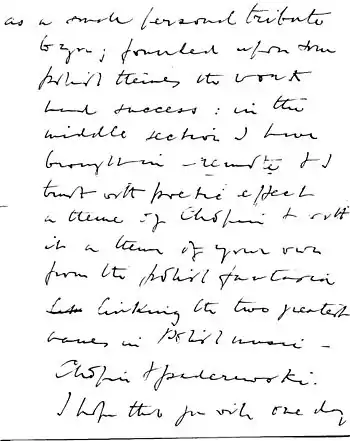 as a small personal tribute
to you; founded upon some
polish themes the work
had success : in the
middle section I have
brought in – remote & I
trust with poetic effect
a theme of Chopin & with
it a theme of your own
from the polish fantasia
linking the two greatest
names in Polish music –
Chopin & Paderewski.
I hope that you will one day